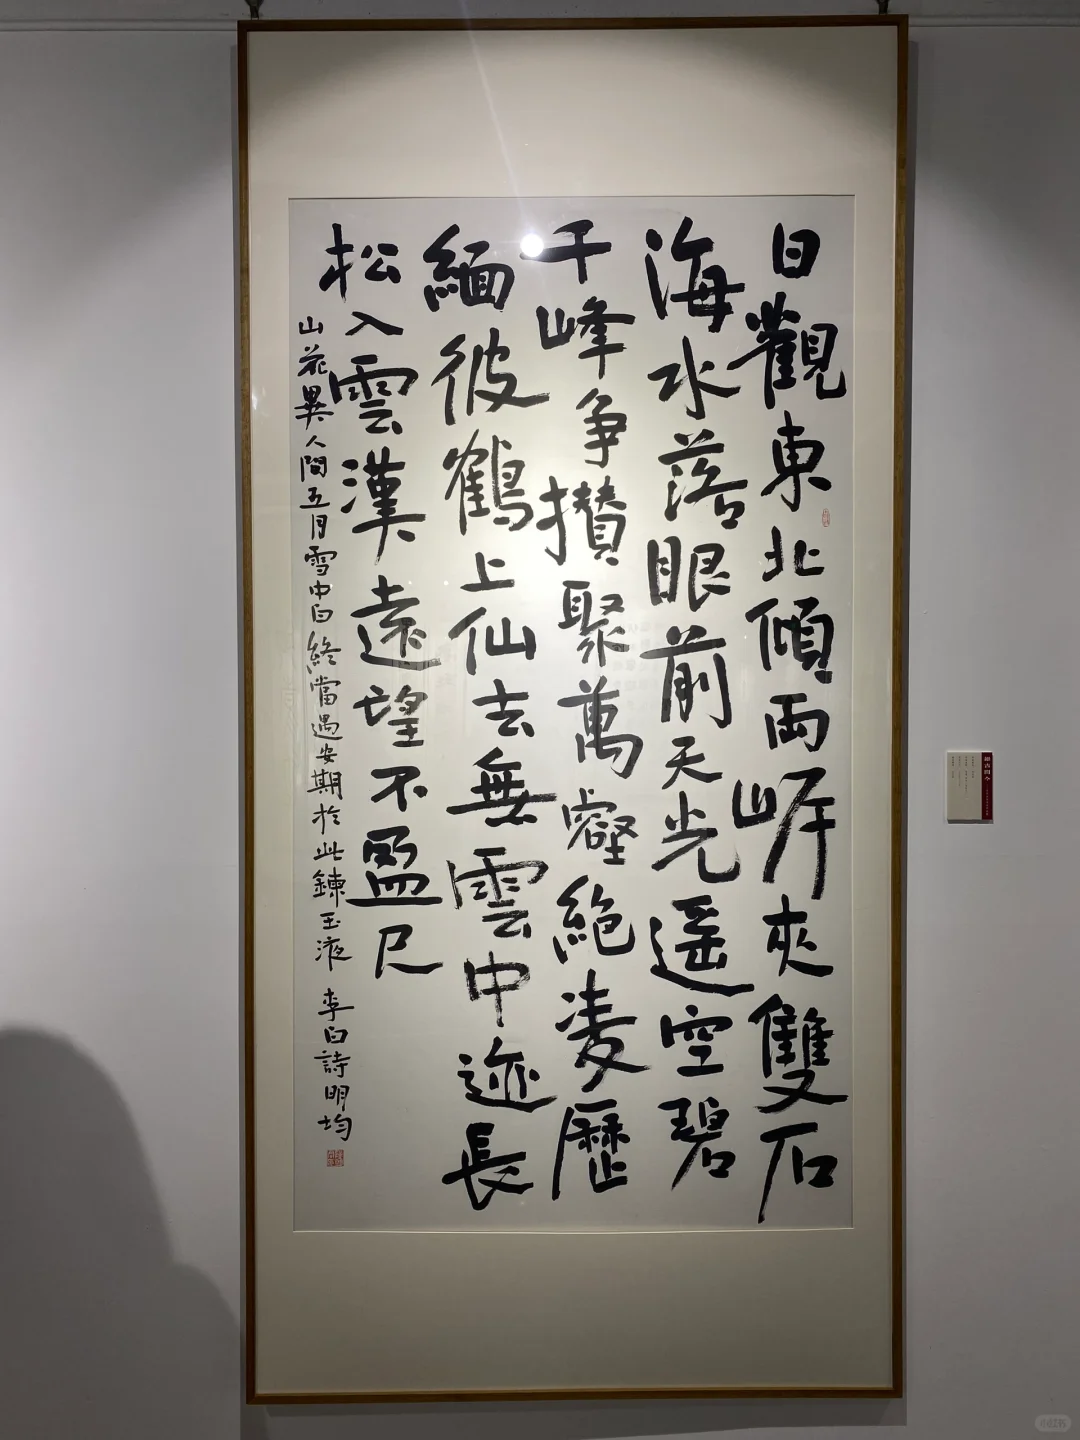 日觀東北傾兩崖夾雙石
海水落眼前天光遥空碧
千峰争攢聚萬壑絶凌歷
緬彼鶴上仙去無雲中迹長
松入雲漢遠望不盈尺
山花異人間五月雪中白終當遇安期於此鍊玉液 李白詩明均